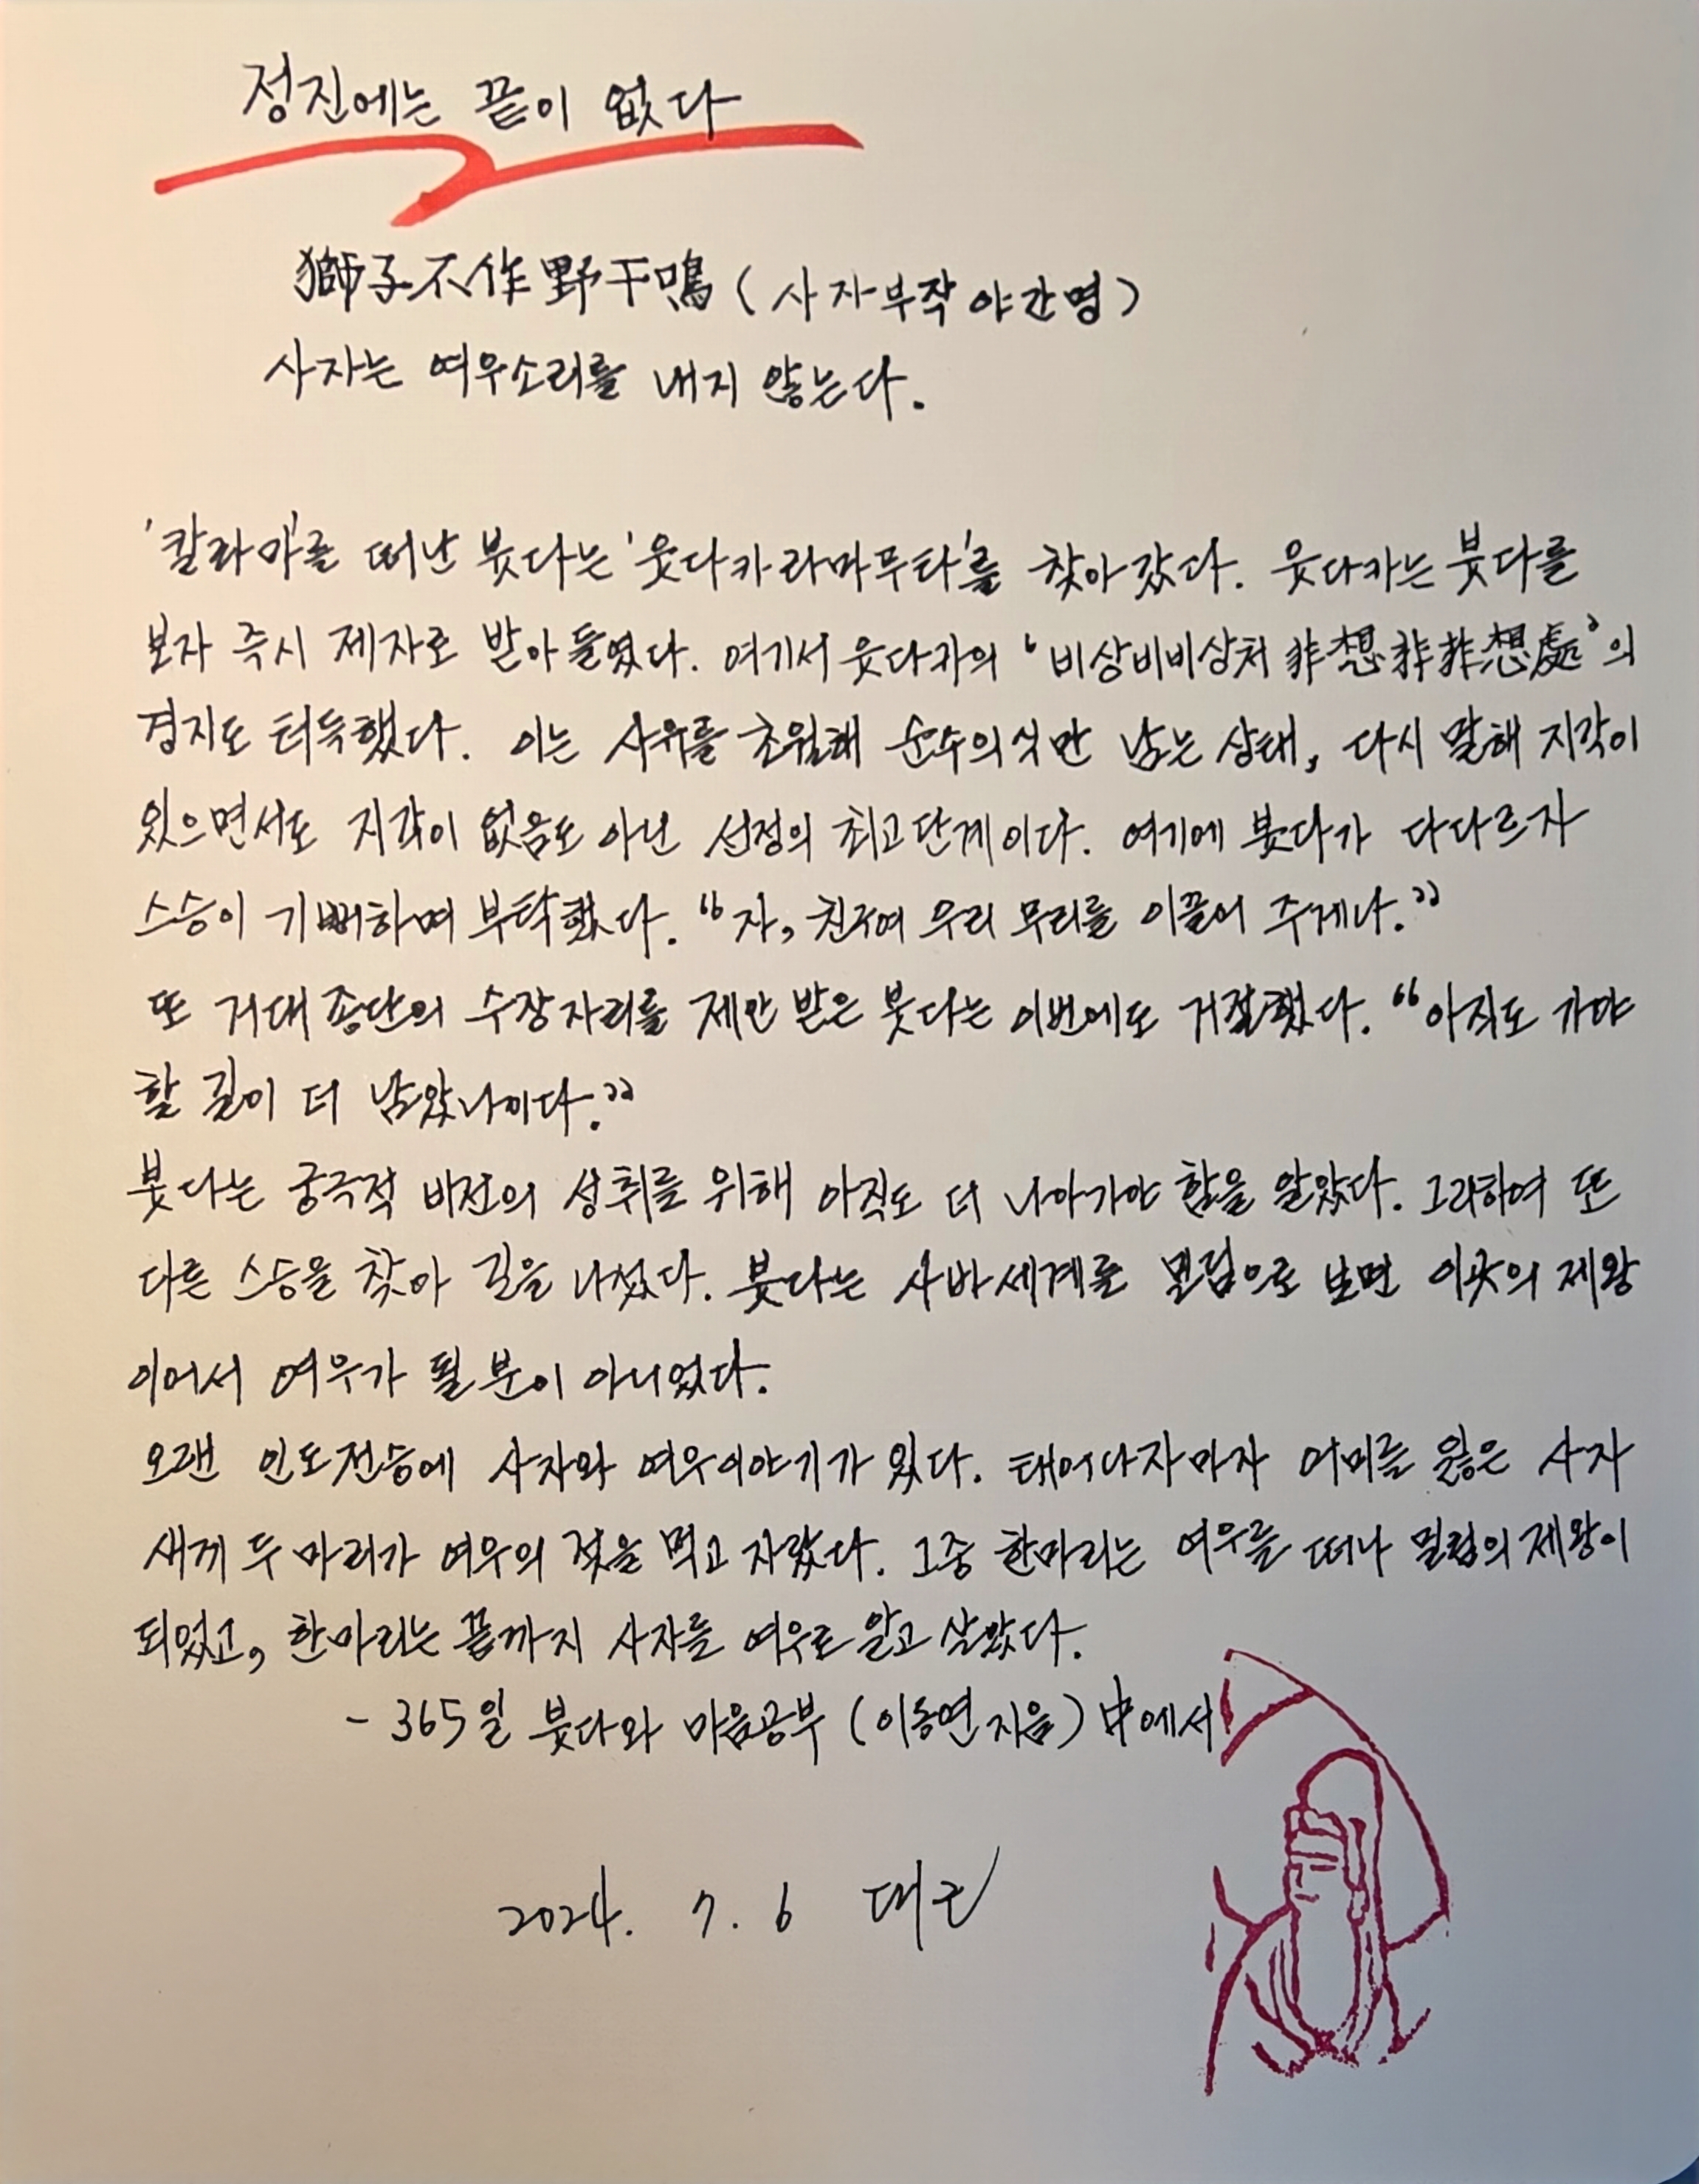 정진에는 끝이 없다
獅子不作野干鳴 (사자부작야간명)
사자는 여우소리를 내지 않는다.
'칼라마'를 떠난 붓다는 '웃다카라마푸타'를 찾아갔다. 웃다카는 붓다를
보자 즉시 제자로 받아들였다. 여기서 웃다카의 '비상비비상처 非想非非想處'의
경지도 터득했다. 이는 사유를 초월해 순수의식만 남는 상태, 다시 말해 지각이
있으면서도 지각이 없음도 아닌 선정의 최고단계이다. 여기에 붓다가 다다르자
스승이 기뻐하며 부탁했다. "자, 친구여 우리 무리를 이끌어 주게나."
또 거대 종단의 수장자리를 제안 받은 붓다는 이번에도 거절했다. "아직도 가야
할 길이 더 남았나이다."
붓다는 궁극적 비전의 성취를 위해 아직도 더 나아가야 함을 알았다. 그리하여 또
다른 스승을 찾아 길을 나섰다. 붓다는 사바세계를 밀림으로 보면 이곳의 제왕
이어서 여우가 될 분이 아니었다.
오랜 인도전승에 사자와 여우이야기가 있다. 태어나자마자 어미를 잃은 사자
새끼 두 마리가 여우의 젖을 먹고 자랐다. 그중 한마리는 여우를 떠나 밀림의 제왕이
되었고, 한마리는 끝까지 사자를 여우로 알고 살았다.
- 365일 붓다와 마음공부 (이동연 지음) 中에서
2024. 7. 6 대근